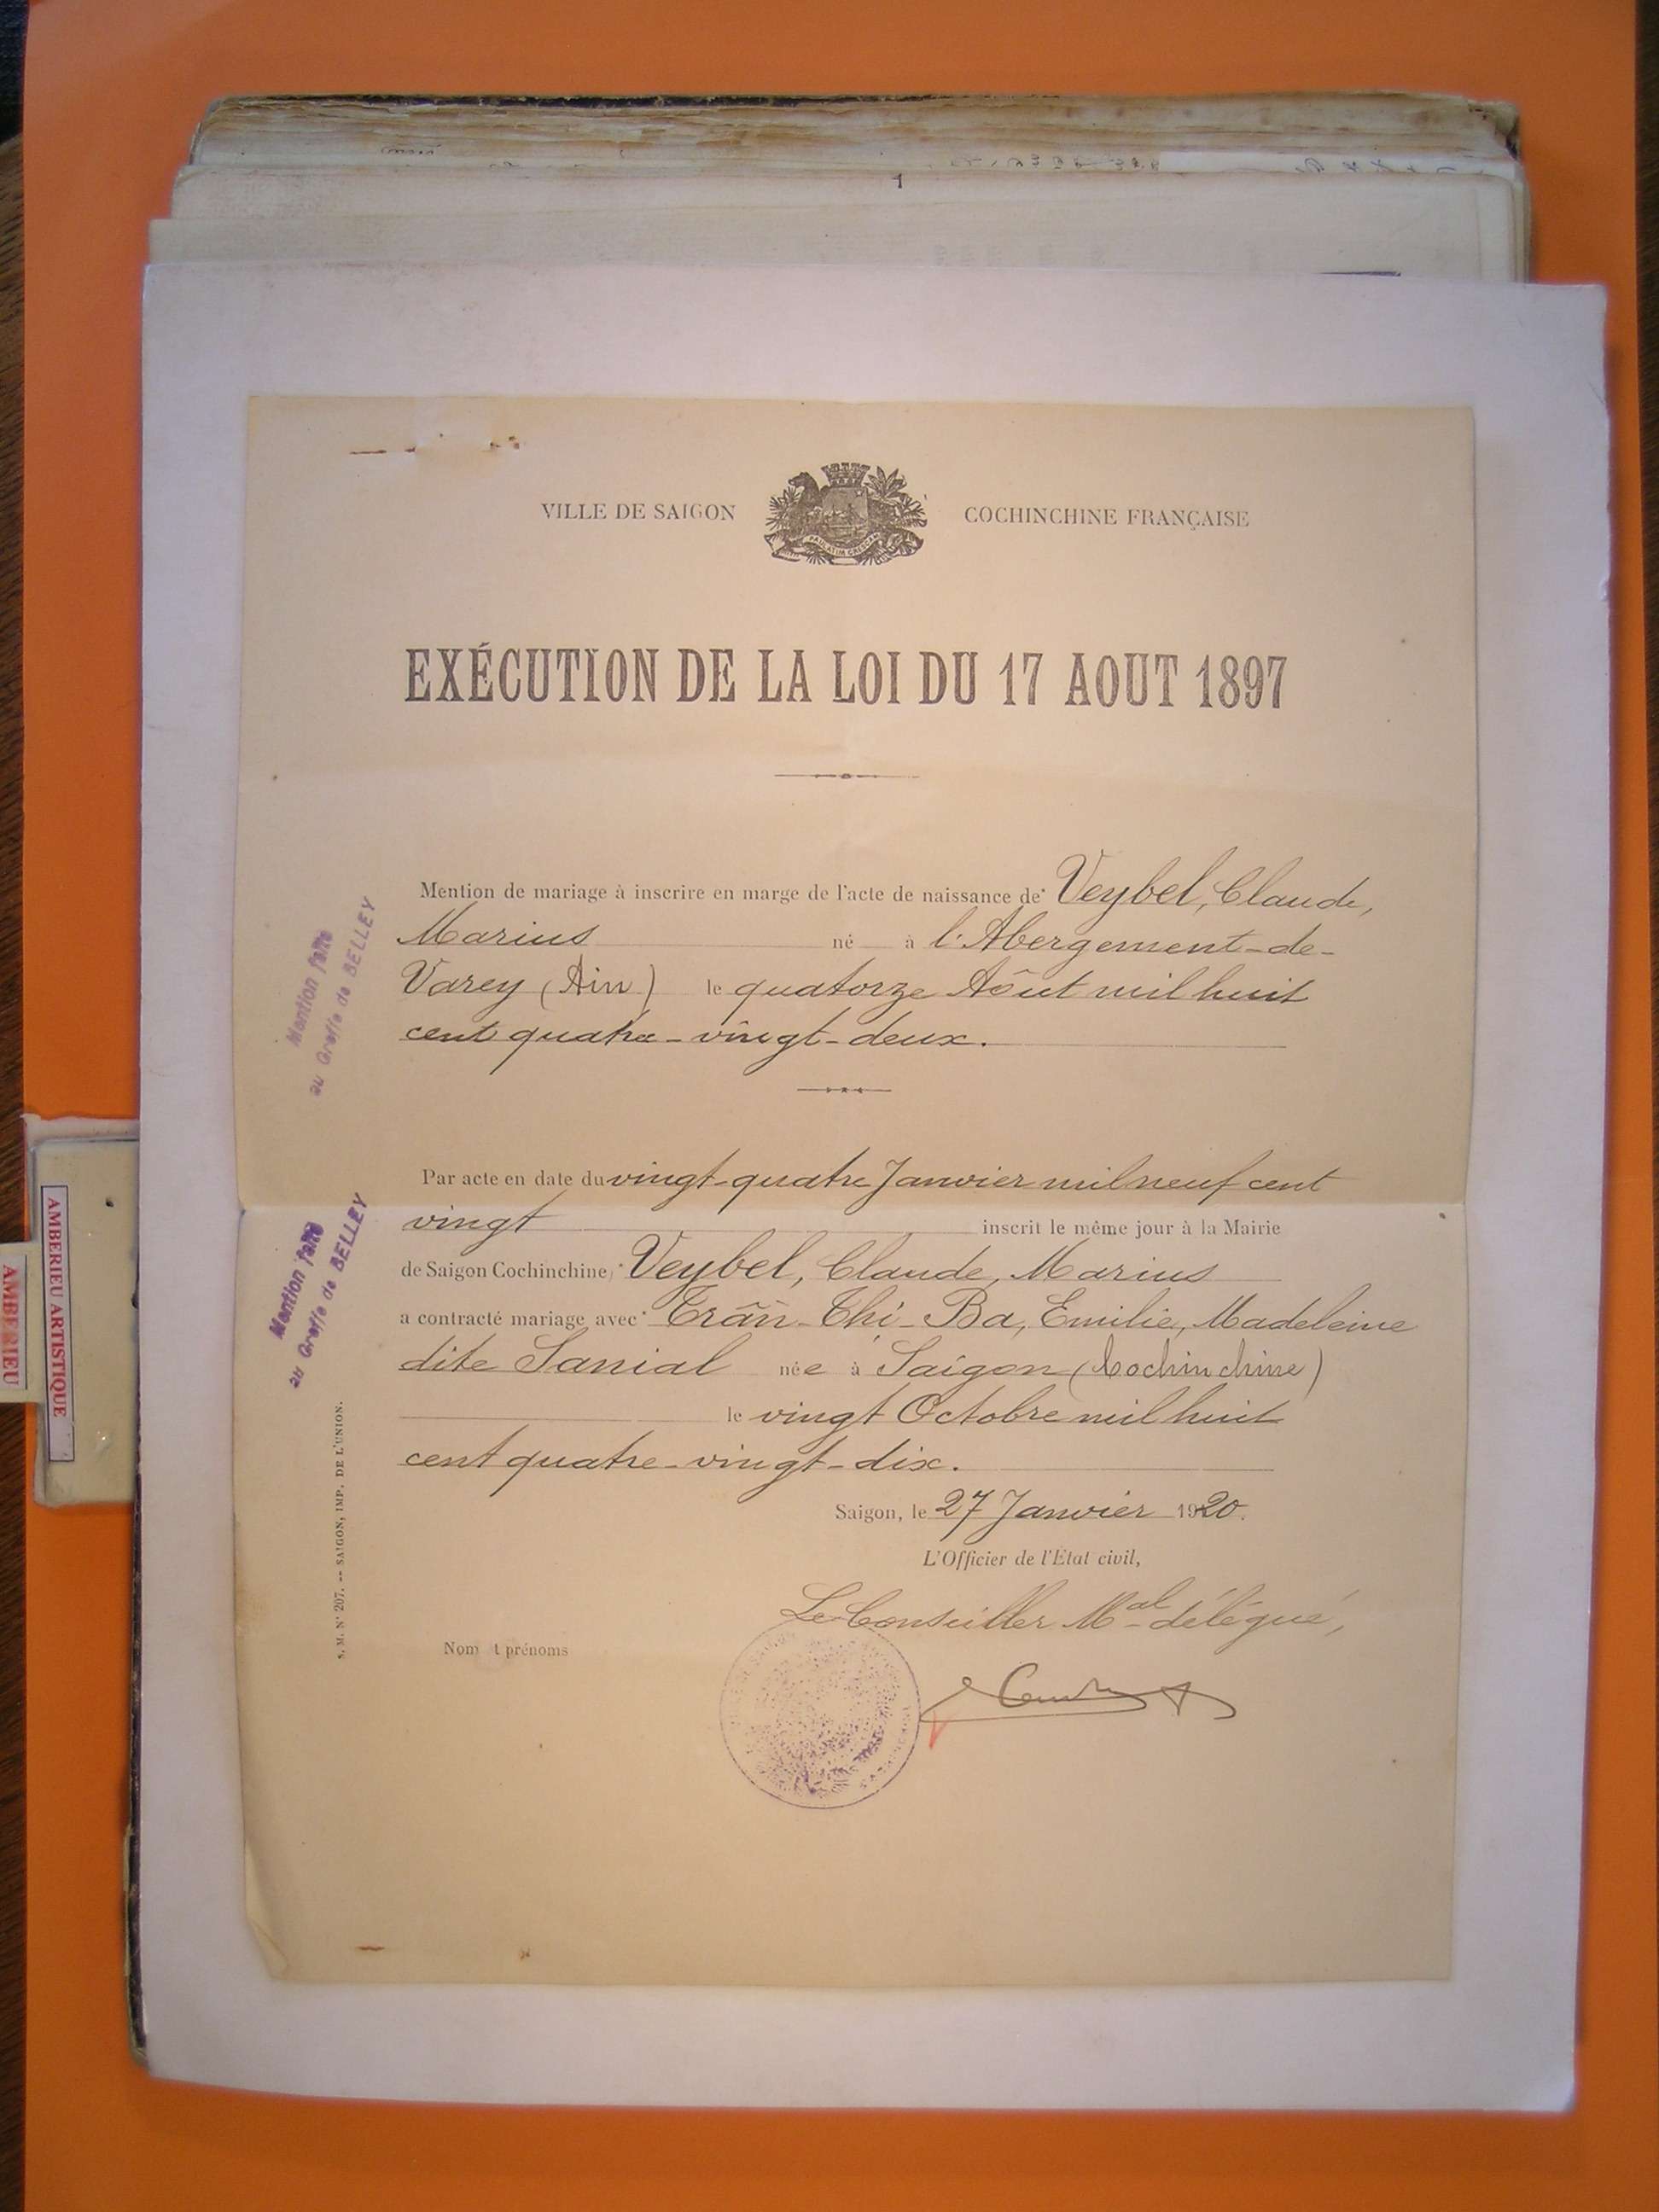 VILLE DE SAIGON
COCHINCHINE FRANÇAISE
PAULATIM CRESCAM
EXÉCUTION DE LA LOI DU 17 AOUT 1897
Mention de mariage à inscrire en marge de l'acte de naissance de Veybel, Claude,
Marius né à l'Abergement-de-
Varey (Ain) le quatorze Aôut mil huit
cent quatre-vingt-deux.
Par acte en date du vingt-quatre Janvier mil neuf cent
vingt inscrit le même jour à la Mairie
de Saigon Cochinchine, Veybel, Claude, Marius
a contracté mariage avec Trân-Thi-Ba, Emilie, Madeleine
dite Sanial née à Saïgon (Cochinchine)
le vingt Octobre mil huit
cent quatre-vingt-dix.
Saigon, le 27 Janvier 1920.
L'Officier de l'Etat civil,
Le Conseiller Mal délégué,
Nom t prénoms
Mention faite
au Greffe de BELLEY
Mention faite
au Greffe de BELLEY
S. M. N° 207. -- SAIGON, IMP. DE L'UNION.
AMBERIEU ARTISTIQUE
AMBERIEU